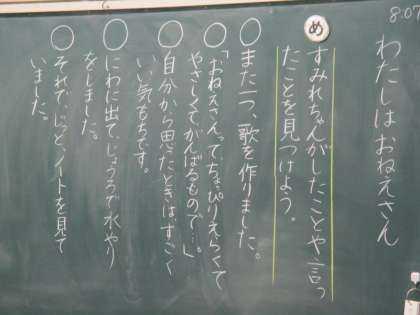 8:07
わたしはおねえさん
め
すみれちゃんがしたことや言っ
たことを見つけよう。
○また一つ、歌を作りました。
○「おねえさんって、ちょっぴりえらくて
やさしくて、がんばるもので…」。
○自分から思ったときは、すごく
いい気もちです。
○にわに出て、じょうろで水やり
をしました。
○それで、じっと、ノートを見て
いました。